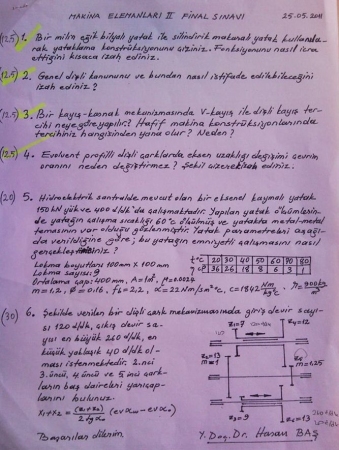 MAKİNA ELEMANLARI II FİNAL SINAVI 25.05.2011
(12,5) 1. Bir milin eğik bilyalı yatak ile silindirik makaralı yatak kullana-
rak yataklama konstrüksiyonunu çiziniz. Fonksiyonunu nasıl icra
ettiğini kısaca izah ediniz.
(12,5) 2. Genel dişli kanununu ve bundan nasıl istifade edilebileceğini
izah ediniz?
(12,5) 3. Bir kayış-kasnak mekanizmasında V-kayış ile dişli kayış ter-
cihi neye göre yapılır? Hafif makina konstrüksiyonlarında
tercihiniz hangisinden yana olur? Neden?
(12,5) 4. Evolvent profilli dişli çarklarda eksen uzaklığı değişimi çevrim
oranını neden değiştirmez? Şekil üzerinde izah ediniz.
(20) 5. Hidroelektrik santralde mevcut olan bir eksenel kaymalı yatak
150 kN yük ve 400 d/dk'da çalışmaktadır. Yapılan yatak ölçümlerin-
de yatağın çalışma sıcaklığı 60°C ölçülmüş ve yatakta metal-metal
temasının var olduğu gözlenmiştir. Yatak parametreleri aşağı-
da verildiğine göre; bu yatağın emniyetli çalışmasını nasıl
gerçekleştirirsiniz?
t °C 20 30 40 50 60 70 80
η cP 36 26 18 8 6 3 1
Lokma boyutları 100mm x 100mm
Lokma sayısı: 9
Ortalama çap: 400 mm, A=1m², μ=0.0024
m=1,2, Φ=0.16, f₆=2,2, α=22 Nm/sm²°C, c=1842 Nm/kg°C, ρ=900 kg/m³
(30) 6. Şekilde verilen bir dişli çark mekanizmasında giriş devir sayı-
sı 120 d/dk, çıkış devir sa-
yısı en büyük 260 d/dk, en
küçük yaklaşık 40 d/dk ol-
ması istenmektedir. 2. nci
3. üncü, 4. üncü ve 5. inci çark-
ların baş dairesi yarıçap-
larını bulunuz.
x₁+x₂ = (z₁+z₂)/(2 tgα₀) (evα₁₂-evα₀)
z₁=7
z₄=12
z₂=13
m=1
m=1,25
z₃=9
z₆=13
Başarılar dilerim.
Y. Doç. Dr. Hasan BAŞ